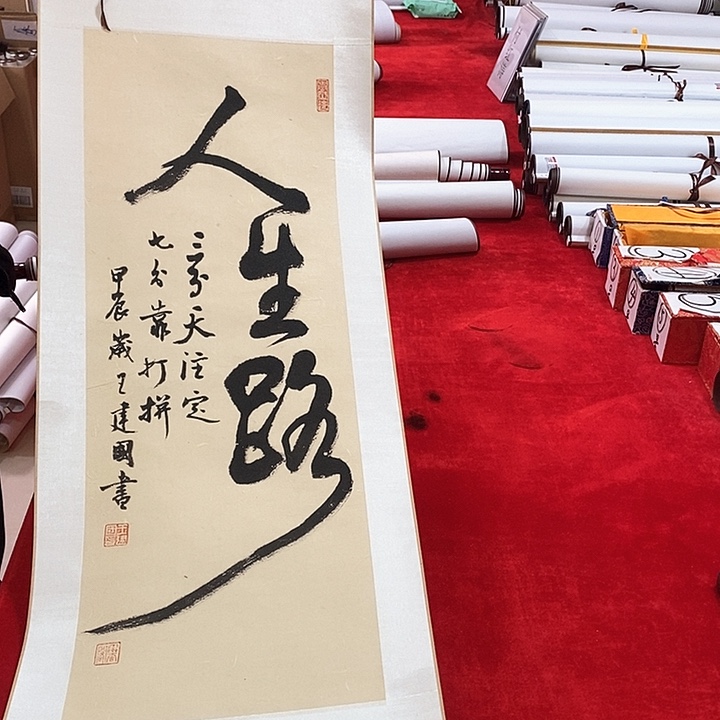 人生路
三分天注定
七分靠打拼
甲辰歲王建國書